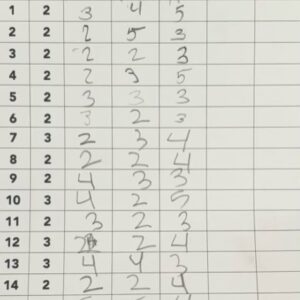 1 2 3 4 5
2 2 2 5 3
3 2 2 2 3
4 2 2 3 5
5 2 3 3 3
6 2 3 2 3
7 3 2 3 4
8 2 2 2 4
9 2 4 3 3
10 3 4 2 5
11 2 3 2 3
12 3 2 4
13 3 4 4 3
14 2 2 2 4